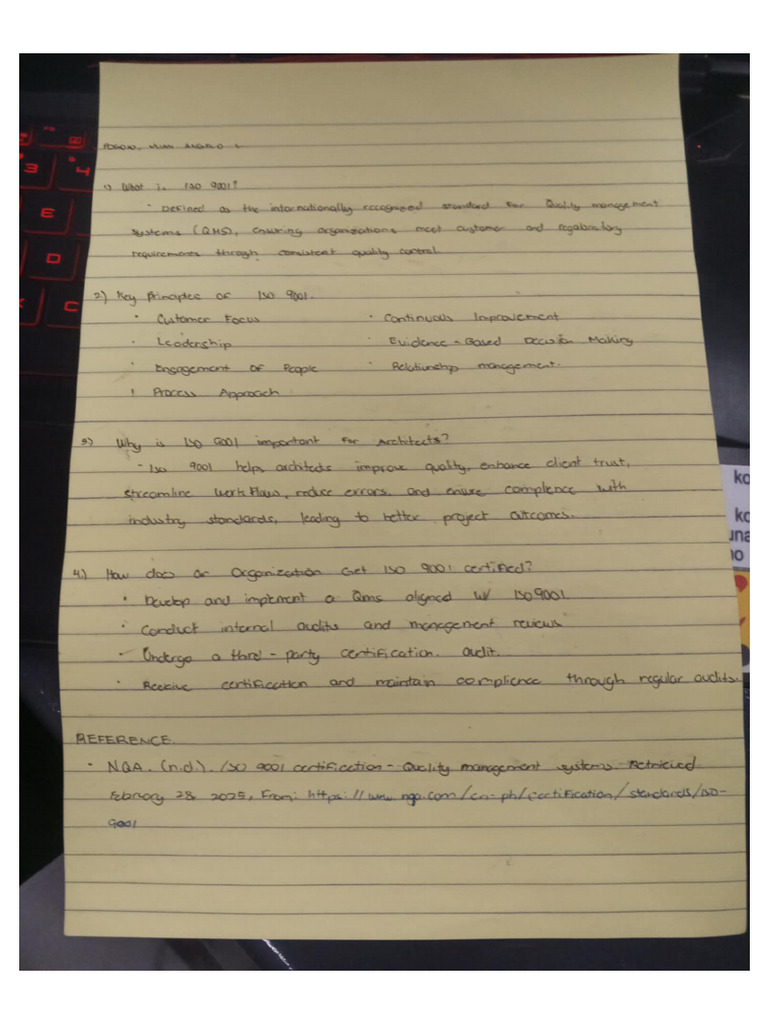 1) What is ISO 9001?
- Defined as the internationally recognized standard for Quality management
systems (QMS), ensuring organizations meet customer and regulatory
requirements through consistent quality control.
2) Key Principles of ISO 9001.
· Customer Focus
· Leadership
· Engagement of People
· Process Approach
· Continuous Improvement
· Evidence-Based Decision Making
· Relationship management.
3) Why is ISO 9001 important for Architects?
- ISO 9001 helps architects improve quality, enhance client trust,
streamline workflows, reduce errors, and ensure complience with
industry standards, leading to better project outcomes.
4.) How does an Organization Get ISO 9001 certified?
· Develop and implement a Qms aligned w/ ISO9001
· Conduct internal audits and management reviews
· Undergo a third-party certification audit.
· Receive certification and maintain complience through regular audits.
REFERENCE
· NQA. (n.d). ISO 9001 certification - Quality management systems Retrieved
February 28, 2025, From: https://www.nqa.com/en-ph/certification/standards/ISO-
9001
3
4
E
D
C
ko
ko
una
no